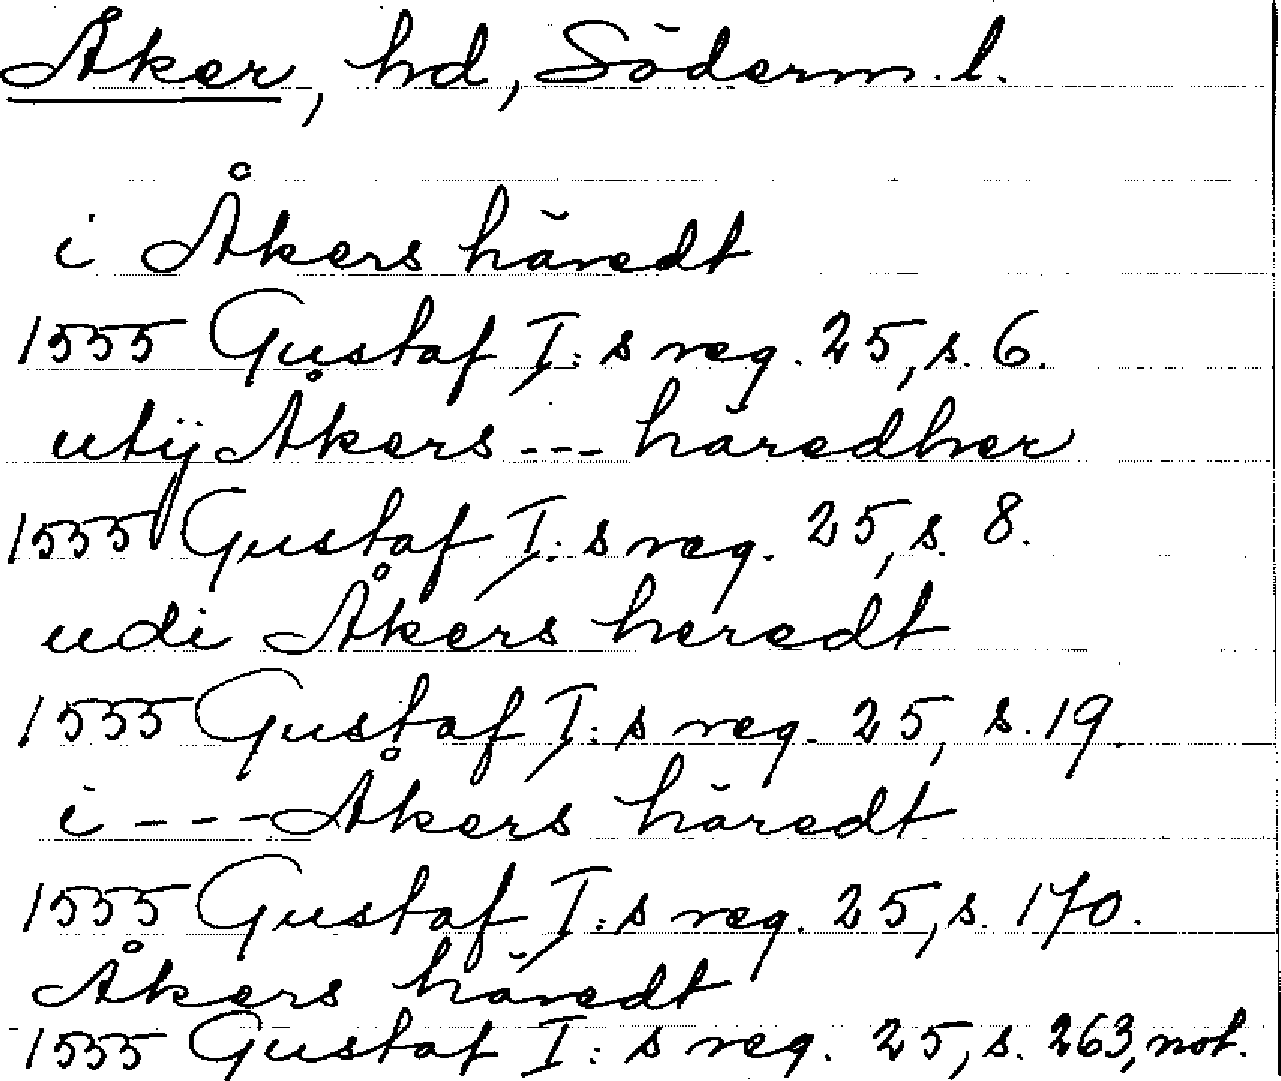 Åker, hd, Söderm. l.
i Åkers häredt
1555 Gustaf I:s reg. 25, s. 6.
utij Åkers --- häredher
1555 Gustaf I:s reg. 25, s. 8.
udi Åkers heredt
1555 Gustaf I:s reg. 25, s. 19.
i --- Åkers häredt
1555 Gustaf I:s reg. 25, s. 170.
Åkers häredt
1555 Gustaf I:s reg. 25, s. 263, not.